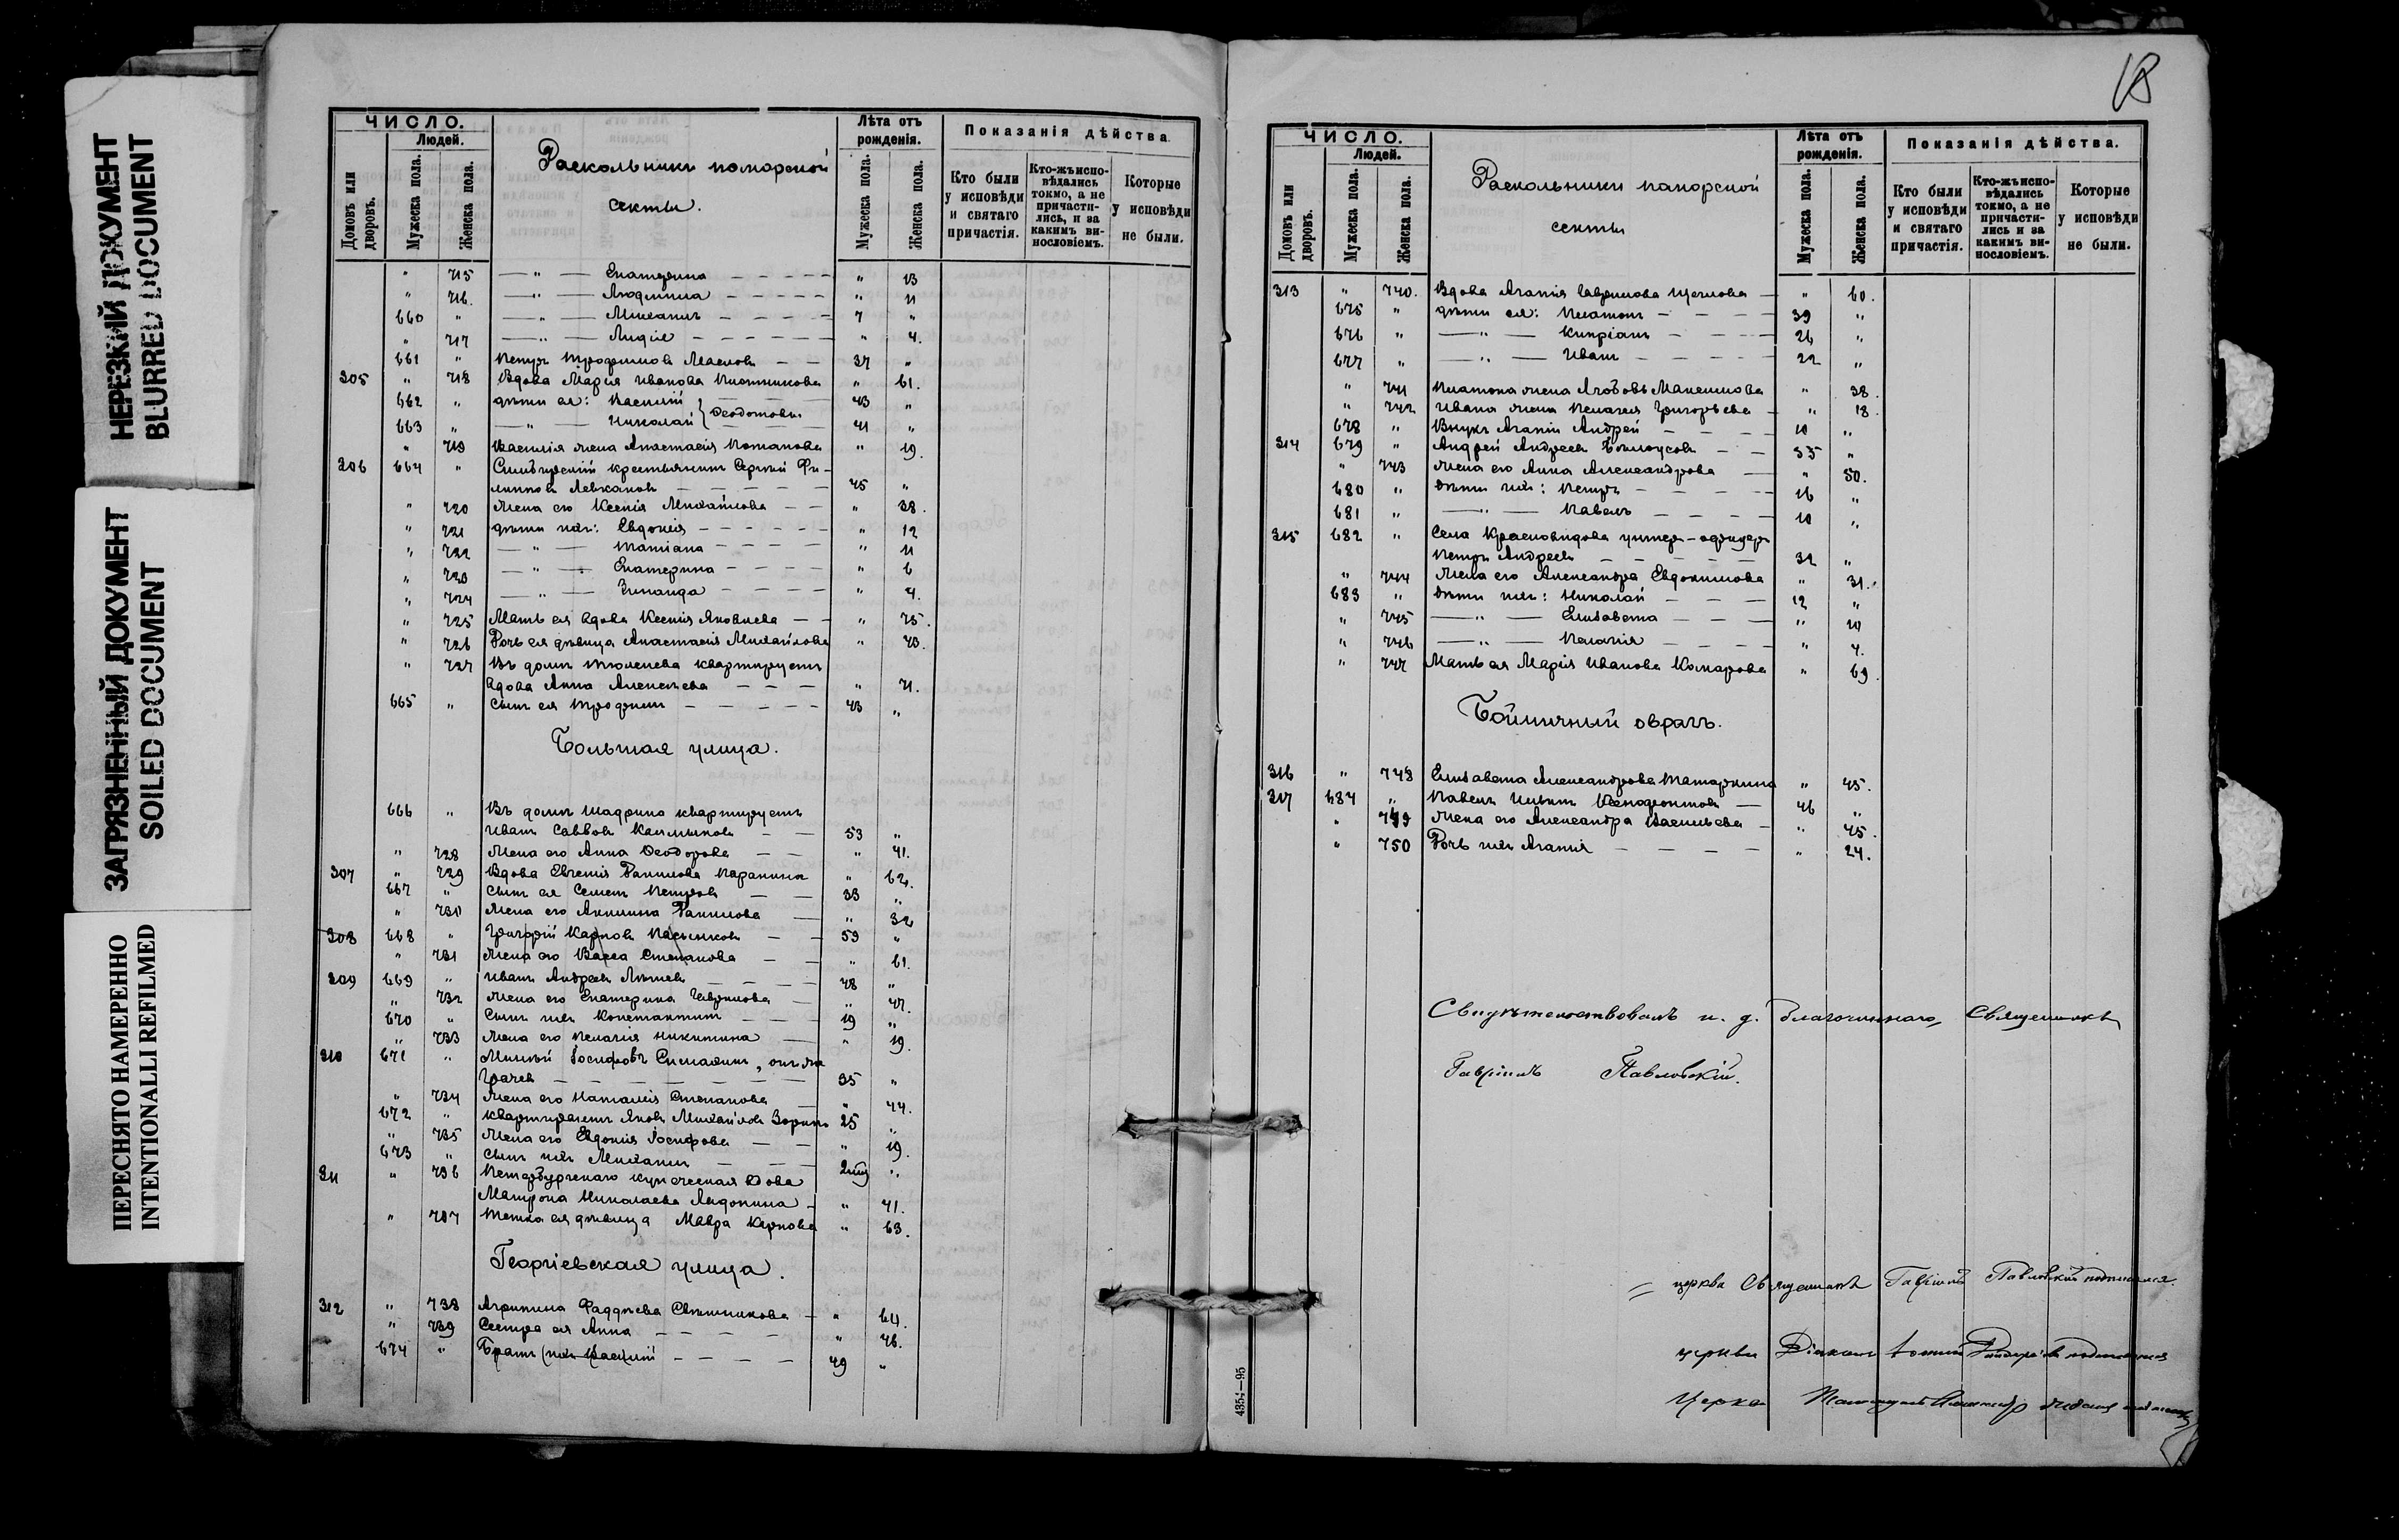 НЕРЕЗКИЙ ДОКУМЕНТ
BLURRED DOCUMENT
ЗАГРЯЗНЕННЫЙ ДОКУМЕНТ
SOILED DOCUMENT
ПЕРЕСНЯТО НАМЕРЕННО
INTENTIONALLI REFILMED
ЧИСЛО.
Людей.
Домовъ или дворовъ.
Мужеска пола.
Женска пола.
Раскольники поморской
секты.
Лѣта отъ рожденія.
Мужеска пола.
Женска пола.
Показанія дѣйства
Кто были у исповѣди и святаго причастія.
Кто-жъ испо-вѣдались токмо, а не причасти-лись, и за какимъ ви-нословіемъ.
Которые у исповѣди не были.
" 715 — " — Екатерина " 13
" 716. — " — Людмила " 11
660 " — " — Михаилъ 7 "
" 717 — " — Лидія " 4.
661 " Петръ Трофимовъ Масловъ 37 "
305 " 718 Вдова Марія Иванова " 61.
662 " дѣти ея: Василій 43 "
663 " — " — Николай } Ѳеодотовы 41 "
" 719 Василія жена Анастасія Потапова " 19.
306 664 " Симбирскій крестьянинъ Сергѣй Фи-
липповъ 45 "
" 720 Жена его Ксенія Михайлова " 38.
" 721 дѣти ихъ: Евдокія " 12
" 722 — " — Татіана " 11
" 723 — " — Екатерина " 6
" 724 — " — Зинаида " 4.
" 725 Мать ея вдова Ксенія Яковлева " 75.
" 726 Дочь ея дѣвица Анастасія Михайлова " 43.
" 727 Въ домѣ Тюленева квартируетъ
вдова Анна Алексѣева " 71.
665 " Сынъ ея Трофимъ 43 "
Большая улица.
666 " Въ домѣ Шадрина квартируетъ
Иванъ Саввовъ Калмыковъ 53 "
" 728 Жена его Анна Ѳеодорова " 41.
307 " 729 Вдова Евгенія Данилова " 62.
667 " Сынъ ея Семенъ Петровъ 33 "
" 730 Жена его Акилина Данилова " 32
308 668 " Григорій Карповъ 59 "
" 731 Жена его Васса Степанова " 61.
309 669 " Иванъ Андреевъ 48 "
" 732 Жена его Екатерина Гаврилова " 47.
670 " Сынъ ихъ Константинъ 19 "
" 733 Жена его Пелагія Никитина " 19.
310 671 " Іосифовъ
Грачев 35 "
" 734 Жена его Наталія Степанова " 44.
672 " Квартирантъ Яковъ Михайловъ Зоринъ 25 "
" 735 Жена его Евдокія Іосифова " 19.
673 " Сынъ ихъ Михаилъ "
311 " 736 Петербургская купеческая вдова
Матрона Николаева " 41.
" 737 Тетка ея дѣвица Мавра Карпова " 63.
Георгіевская улица.
312 " 738 Агрипина Фаддѣева " 64.
" 739 Сестра ея Анна " 46.
674 " Братъ ихъ Василій 49 "
18
ЧИСЛО.
Людей.
Домовъ или дворовъ.
Мужеска пола.
Женска пола.
Раскольники поморской
секты
Лѣта отъ рожденія.
Мужеска пола.
Женска пола.
Показанія дѣйства.
Кто были у исповѣди и святаго причастія.
Кто-жъ испо-вѣдались токмо, а не причасти-лись и за какимъ ви-нословіемъ.
Которые у исповѣди не были.
313 " 740. Вдова Агапія Гаврилова Щеглова " 60.
675 " дѣти ея: Платонъ 39 "
676 " — " — Кипріанъ 26 "
677 " — " — Иванъ 22 "
" 741 Платона жена Любовь Максимова " 38.
" 742 Ивана жена Пелагея Григорьева " 18.
678 " Внукъ Агапіи Андрей 10 "
314 679 " Андрей Андреевъ Бѣлоусовъ 55 "
" 743 Жена его Анна Александрова " 50.
680 " Дѣти ихъ: Петръ 16 "
681 " — " — Павелъ 10 "
315 682 " Села Красновидова унтеръ-офицеръ
Петръ Андреевъ 32 "
" 744 Жена его Александра Евдокимова " 31.
683 " Дѣти ихъ: Николай 12 "
" 745 — " — Елисавета " 10
" 746 — " — Пелагія " 4.
" 747 Мать ея Марія Иванова Комарова " 69.
овраг.
316 " 748 Елисавета Александрова Татаркина " 45.
317 684 " Павелъ Ильинъ Ксенофонтовъ 46 "
" 749 Жена его Александра Васильева " 45.
" 750 Дочь ихъ Агапія " 24.
Свидѣтельствовалъ и. д. Благочиннаго, Священникъ
Гавріилъ Павловскій.
церкви Священникъ Гавріилъ Павловскій подписался.
церкви Діаконъ
Церкви
4354—95